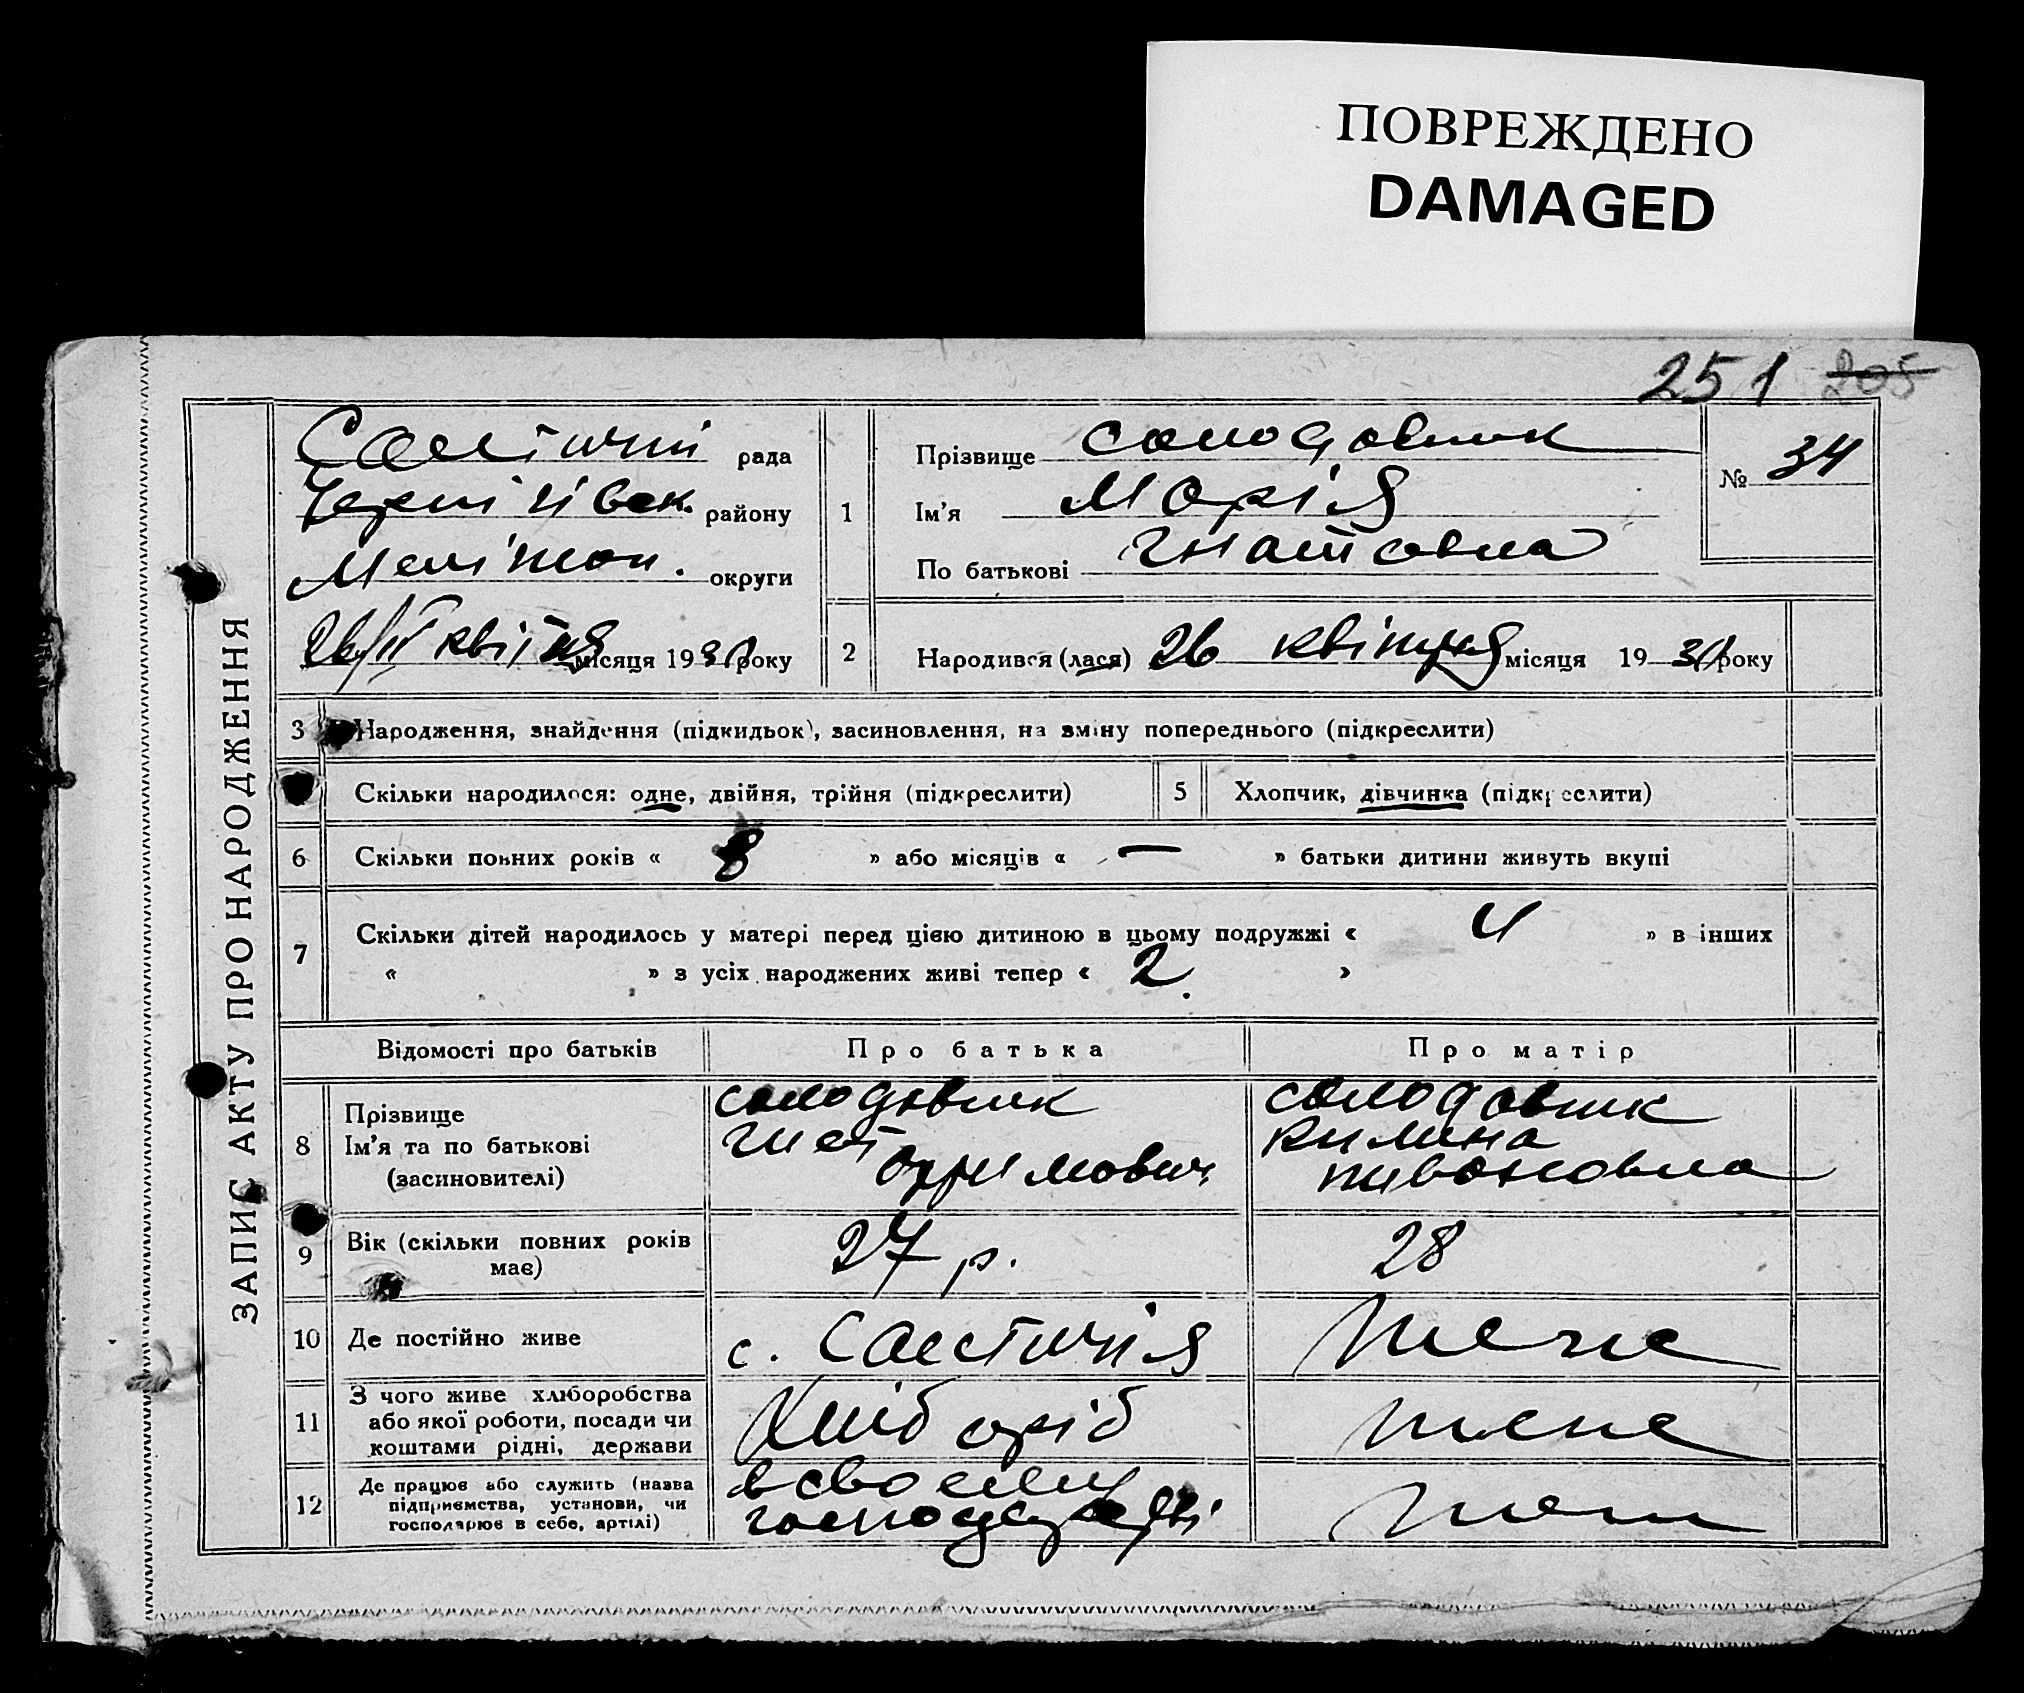 ПОВРЕЖДЕНО
DAMAGED
251 205
ЗАПИС АКТУ ПРО НАРОДЖЕННЯ
рада
Чернігівск. району
Мелітоп. округи
26/IV квітня місяця 1930 року
1
Прізвище солодовник
Ім'я Марія
По батькові Гнатовна
№ 34
2
Народився (лася) 26 квітня місяця 1930 року
3 Народження, знайдення (підкидьок), засиновлення, на зміну попереднього (підкреслити)
Скільки народилося: одне, двійня, трійня (підкреслити)
5 Хлопчик, дівчинка (підкреслити)
6 Скільки повних років « 8 » або місяців « — » батьки дитини живуть вкупі
7 Скільки дітей народилось у матері перед цією дитиною в цьому подружжі « 4 » в інших
« » з усіх народжених живі тепер « 2 »
Відомості про батьків Про батька Про матір
8 Прізвище
Ім'я та по батькові
(засиновителі)
солодовник
Гнат
солодовник
9 Вік (скільки повних років
має)
27 р. 28
10 Де постійно живе с. теж
11 З чого живе хліборобства
або якої роботи, посади чи
коштами рідні, держави
Хлібороб
12 Де працює або служить (назва
підприємства, установи, чи
господарює в себе, артілі)
в своему
господарстві